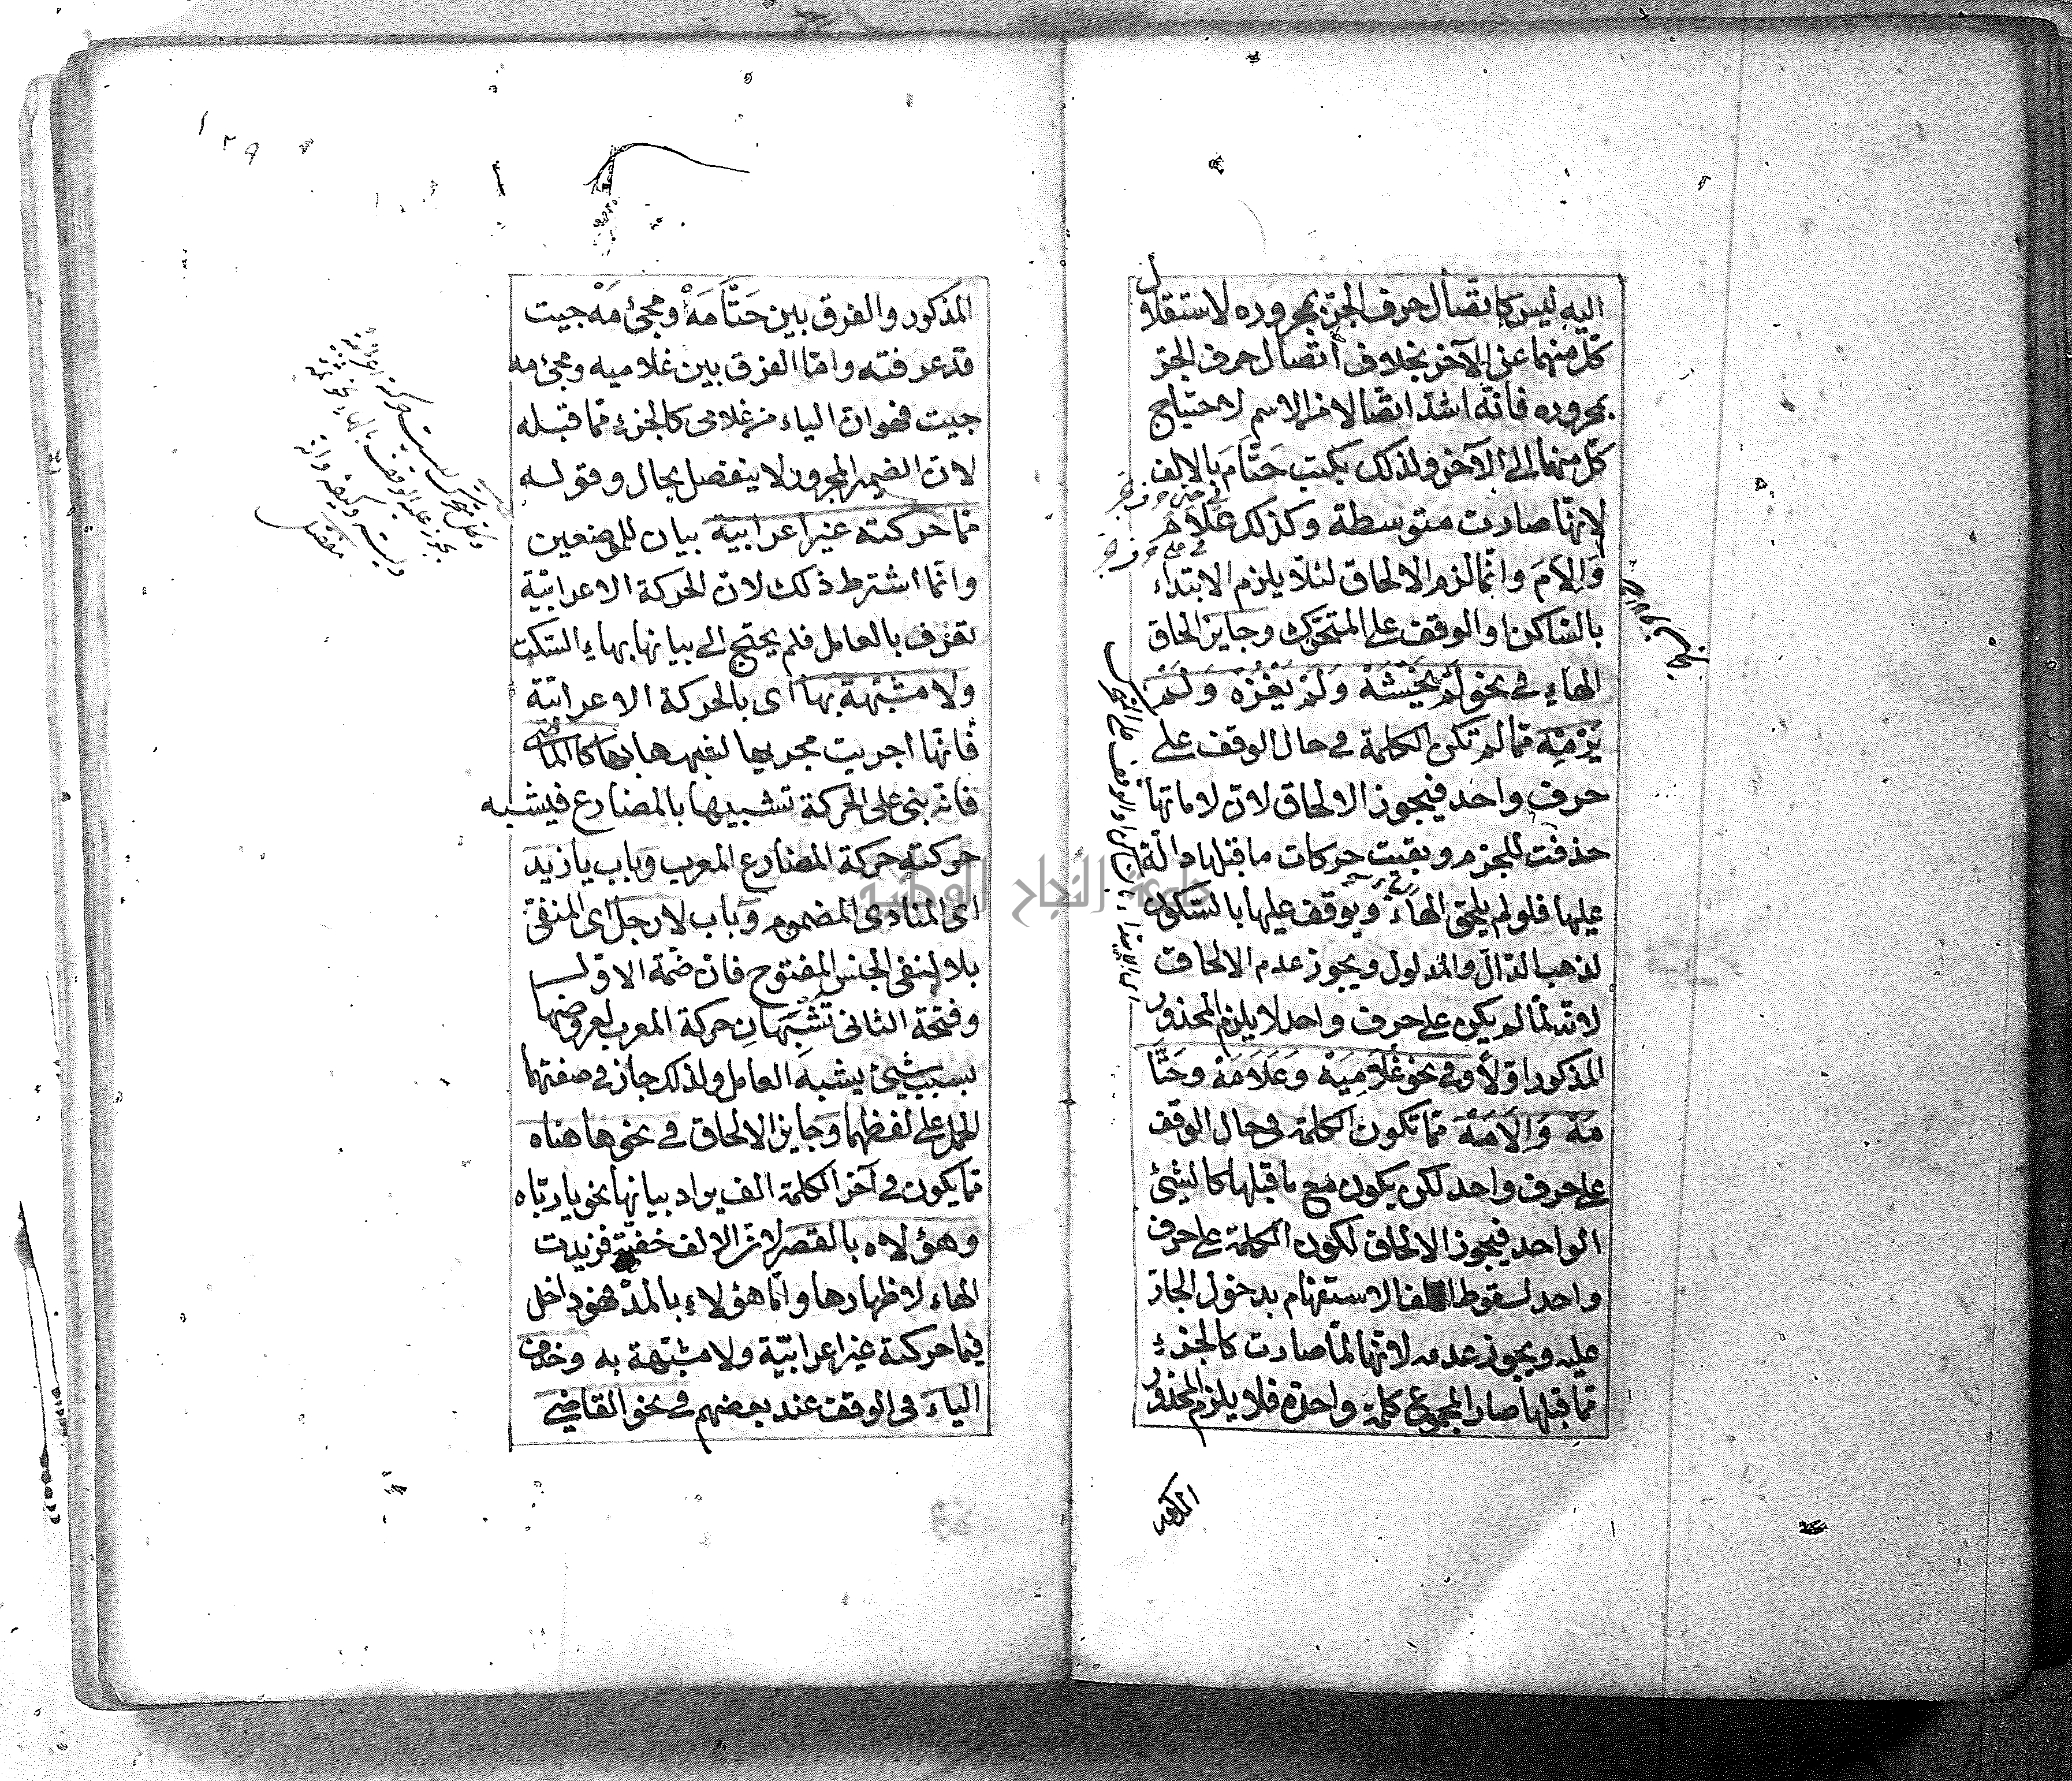 اليه ليس كاتصال حرف الجرّ بمجروره لاستقلال
كلّ منهما عن الآخر بخلاف اتصال حرف الجرّ
بمجروره فانّه اشدّ اتصالا من الاسم لاحتياج
كلّ منهما الى الآخر ولذلك يكتب حَتَّامَ بالالف
لانّها صارت متوسطة وكذلك عَلَامَ
وَاِلَامَ وانّما لزم الالحاق لئلّا يلزم الابتداء
بالساكن او الوقف على المتحرّك وجايز الحاق
الهاء في نحو لَمْ يَخْشَهْ وَلَمْ يَغْزُهْ وَلَمْ
يَرْمِهْ ممّا لم تكن الكلمة في حال الوقف على
حرف واحد فيجوز الالحاق لانّ لاماتها
حذفت للجزم وبقيت حركات ما قبلها دالّة
عليها فلو لم يلحق الهاء ويوقف عليها بالسكون
لذهب الدّالّ والمدلول ويجوز عدم الالحاق
لانّه لمّا لم يكن على حرف واحد لا يلزم المحذور
المذكور اوّلًا وفي نحو غُلَامِيَهْ وَعَلَامَهْ وحَتَّا
مَهْ وَاِلَامَهْ ممّا تكون الكلمة في حال الوقف
على حرف واحد لكن يكون مع ما قبلها كالشئ
الواحد فيجوز الالحاق لكون الكلمة على حرف
واحد لسقوط الف الاستفهام بدخول الجارّ
عليه ويجوز عدمه لانّها لمّا صارت كالجزء
ممّا قبلها صار المجموع كلمة واحدة فلا يلزم المحذور
المذكور
المذكور والفرق بين حَتَّامَهْ ومجئ مَهْ جيت
قد عرفته وامّا الفرق بين غلاميه ومجئ مه
جيت فهو ان الياء من غلامى كالجزء ممّا قبله
لان الضمير المجرور لا ينفصل بحال وقوله
ممّا حركته غير اعرابية بيان للموضعين
وانّما اشترط ذلك لانّ الحركة الاعرابيّة
تعرف بالعامل فلم يحتج الى بيانها بهاء السّكت
ولا مشبّهة بها اى بالحركة الاعرابيّة
فانّها اجريت مجريها لشبهها بها كالماضى
فانّه بنى على الحركة تشبيها بالمضارع فيشبه
حركته حركة المضارع المعرب وباب يا زيد
اى المنادى المضموم وباب لا رجل اى المنفىّ
بلا لنفى الجنس المفتوح فانّ ضمّة الاوّل
وفتحة الثانى تُشْبِهَانِ حركة المعرب لعروضها
بسبب شئ يشبه العامل ولذلك جاز في صفتهما
الحمل على لفظهما وجايز الالحاق في نحو هاهناه
ممّا يكون في آخر الكلمة الف يراد بيانها نحو يا ربّاه
وهؤلاه بالقصر لانّ الالف خفيّة فزيدت
الهاء لاظهارها وامّا هؤلاء بالمدّ فهو داخل
فيما حركته غير اعرابيّة ولا مشبّهة به وحذف
الياء في الوقف عند بعضهم في نحو القاضى
جامعة النجاح الوطنية